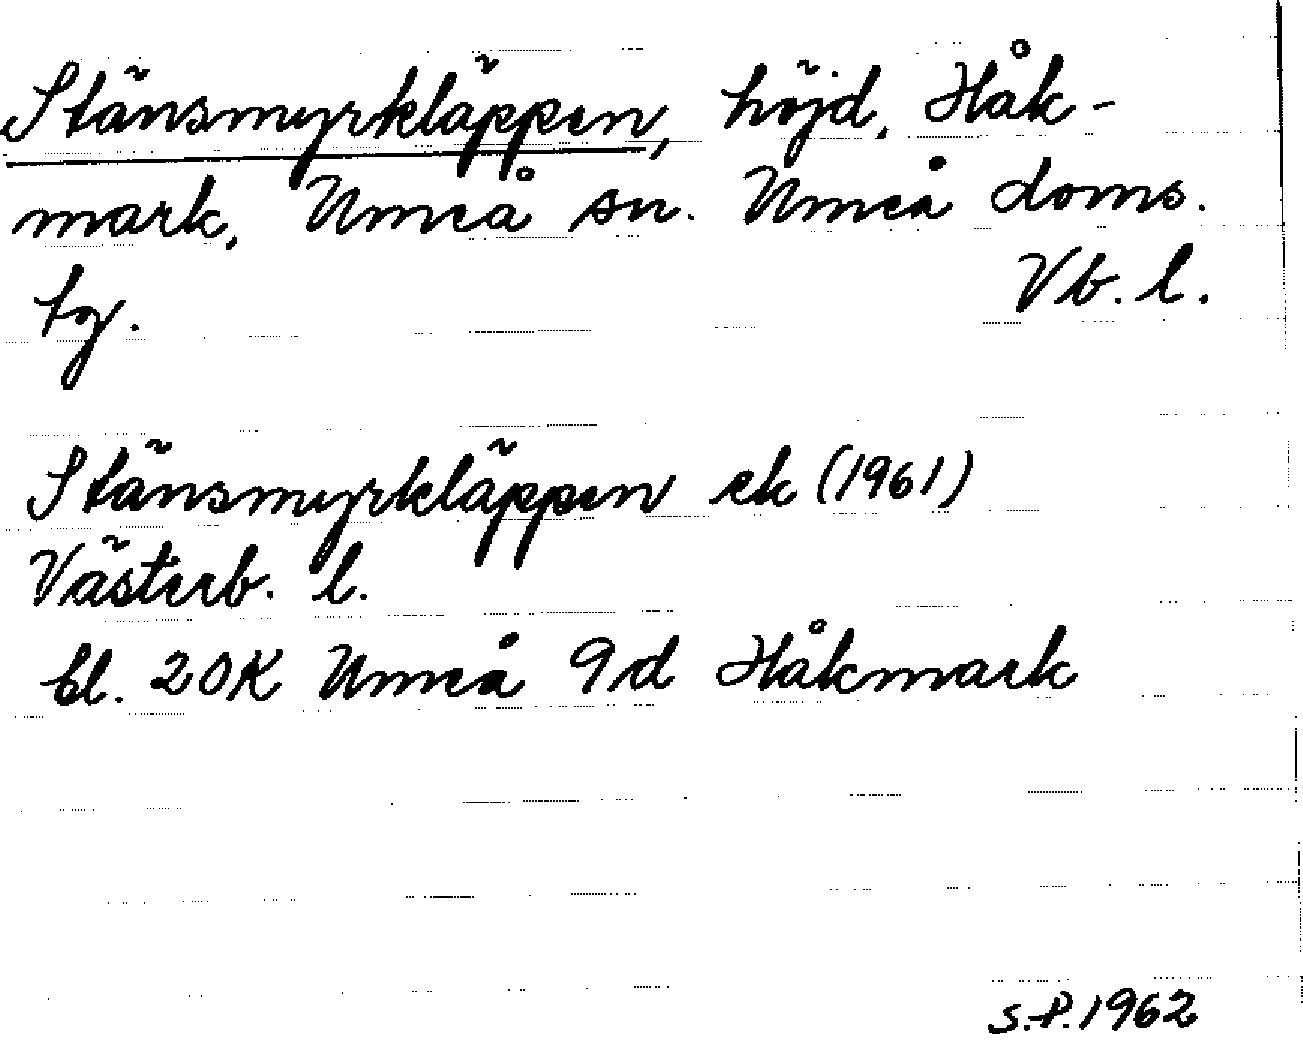 Stänsmyrkläppen, höjd, Håk-
mark, Umeå sn. Umeå doms.
tg. Vb. l.
Stänsmyrkläppen ek (1961)
Västerb. l.
bl. 20K Umeå 9d Håkmark
S.P. 1962